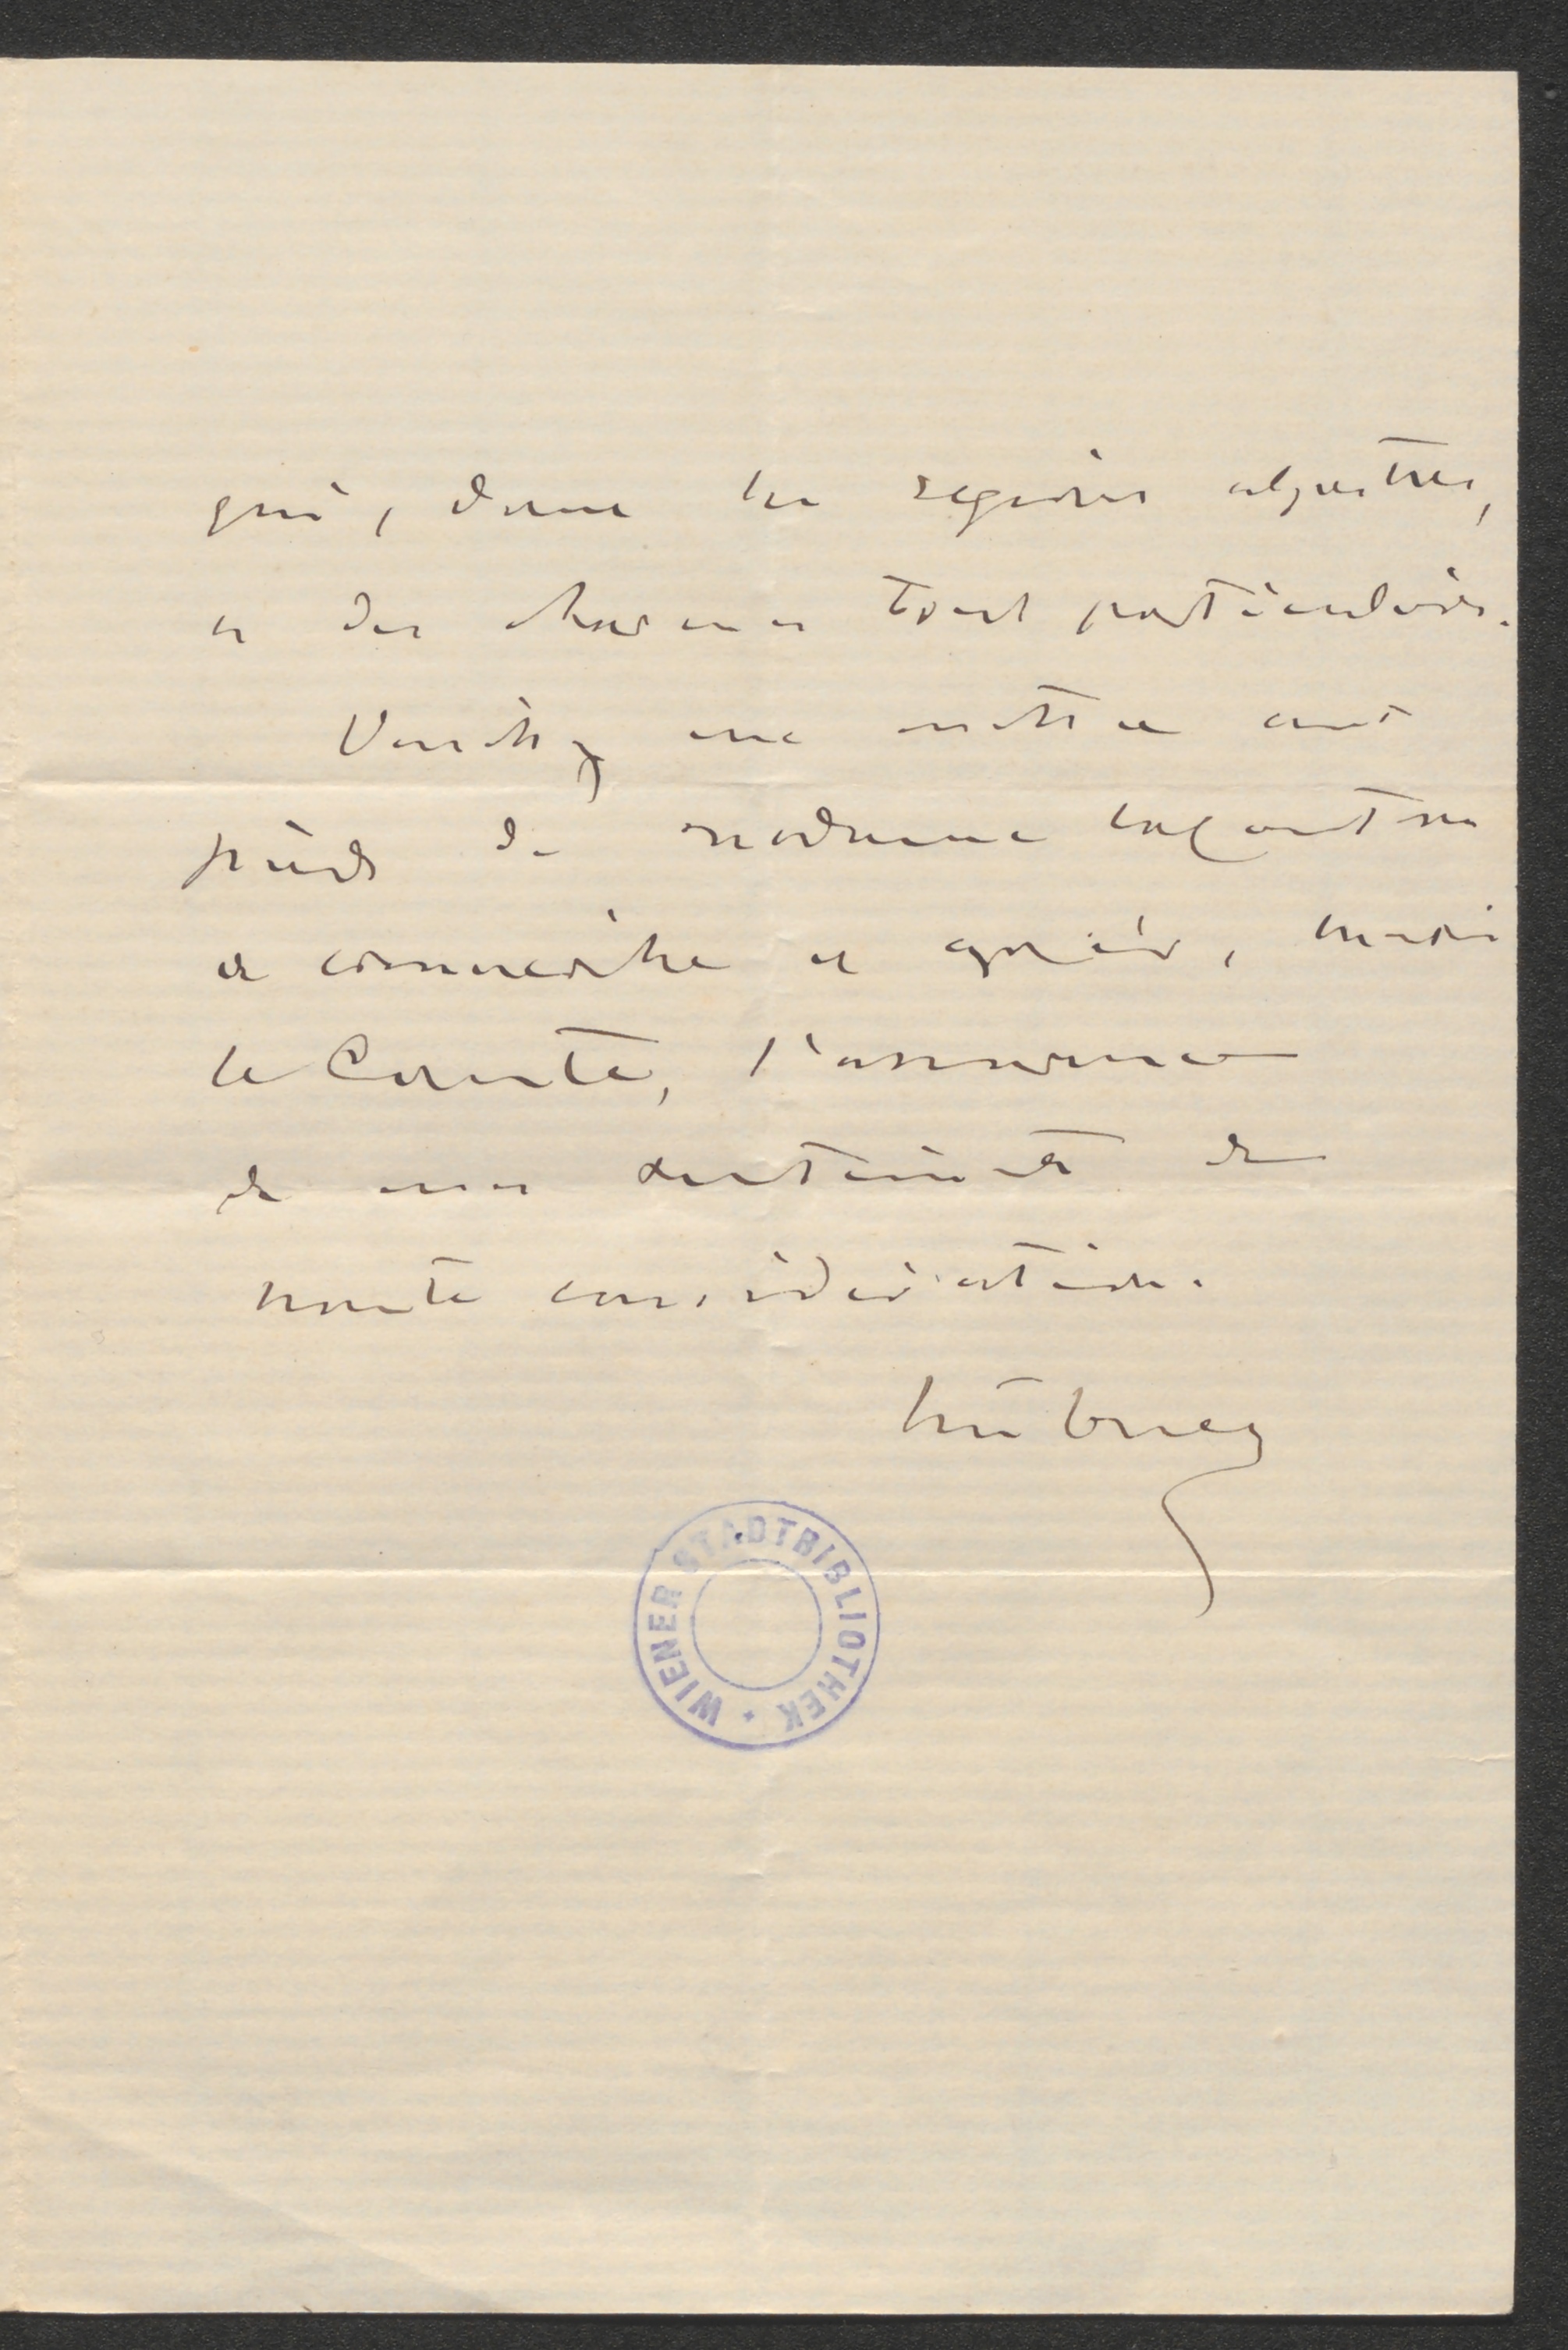 qui, dans les régions alpestres,
a des charmes tout particuliers.
Veuillez me mettre aux
pieds de madame la Comtesse
et connaître et agréer, mon
le Comte, l'assurance
de mes sentiments de
haute considération.
Hübner
WIENER STADTBIBLIOTHEK